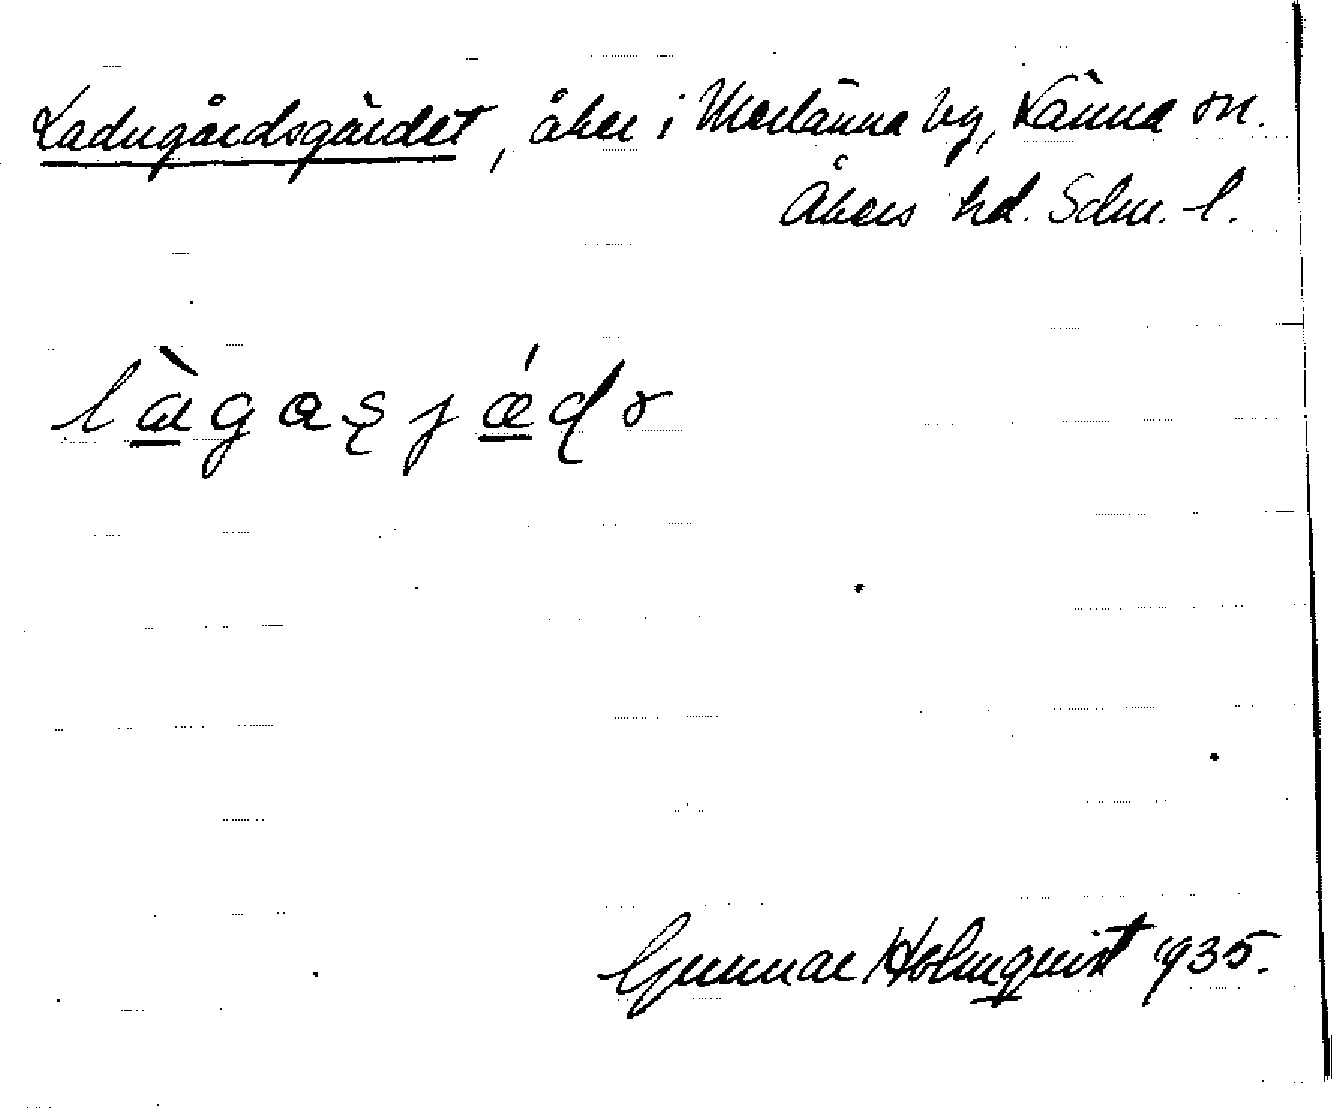 Ladugårdsgärdet, åker i Merlänna by, Länna sn.
Åkers hd. Sdm. l.
lægaʂjædɵ
Gunnar Holmquist 1935.